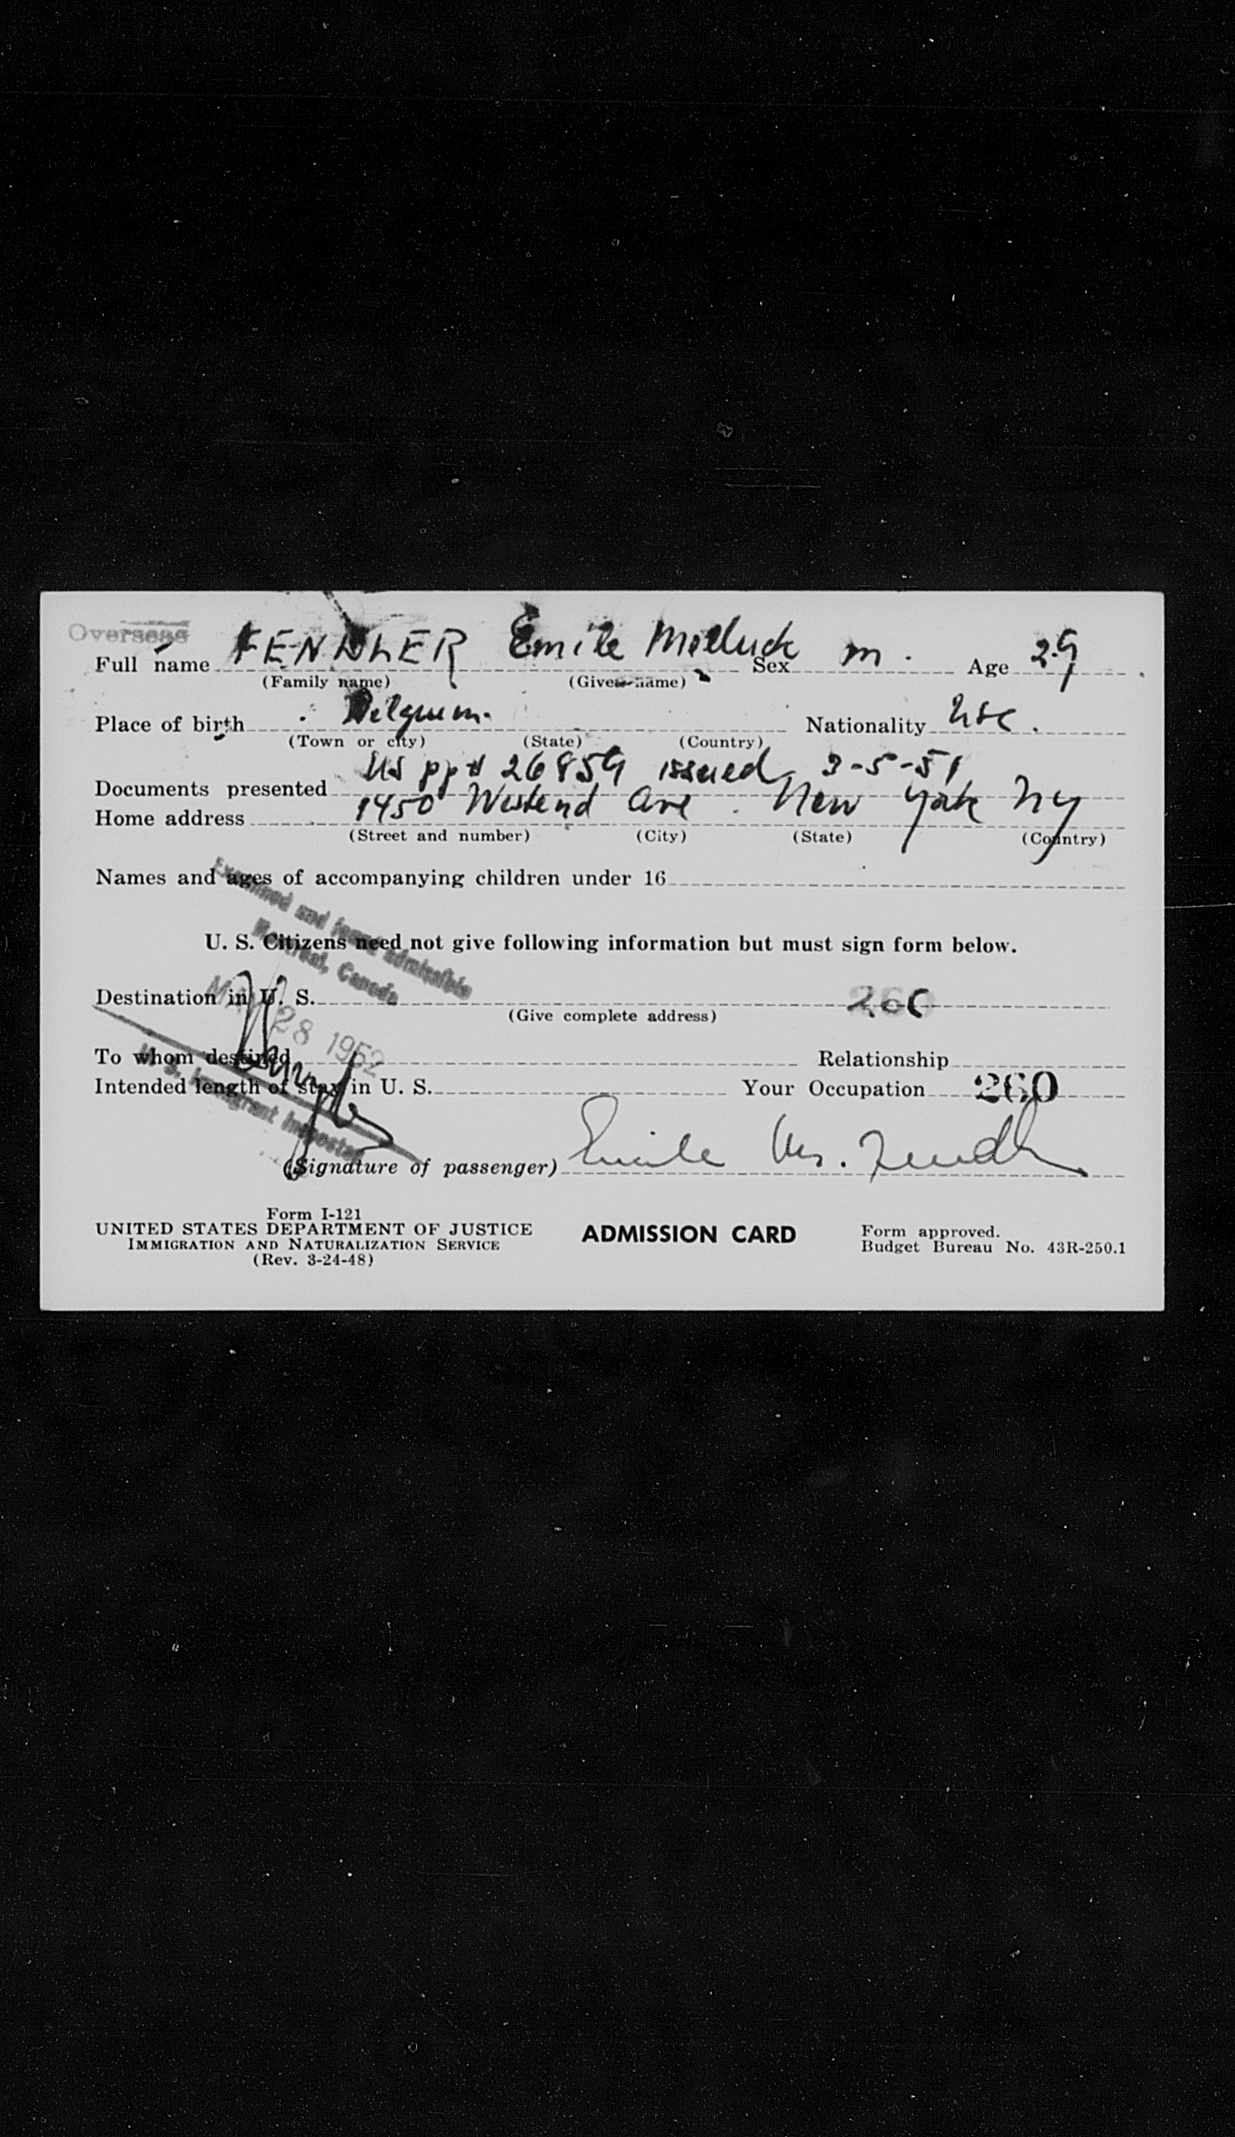 Overseas
Full name FENDLER Emile Sex M. Age 29
(Family name) (Given name)
Place of birth Belgium. Nationality USC.
(Town or city) (State) (Country)
US pp # 26859 issued 3-5-51
Documents presented
Home address 1450 Westend Ave. New York NY
(Street and number) (City) (State) (Country)
Names and ages of accompanying children under 16
Examined and found admissible
Montreal, Canada
U. S. Citizens need not give following information but must sign form below.
Destination in U. S. 260
(Give complete address)
MAY 28 1952
To whom destined Relationship
Intended length of stay in U. S. Your Occupation 260
U. S. Immigrant Inspector
(Signature of passenger) Emile M. Fendler
Form I-121
UNITED STATES DEPARTMENT OF JUSTICE
IMMIGRATION AND NATURALIZATION SERVICE
(Rev. 3-24-48)
ADMISSION CARD
Form approved.
Budget Bureau No. 43R-250.1